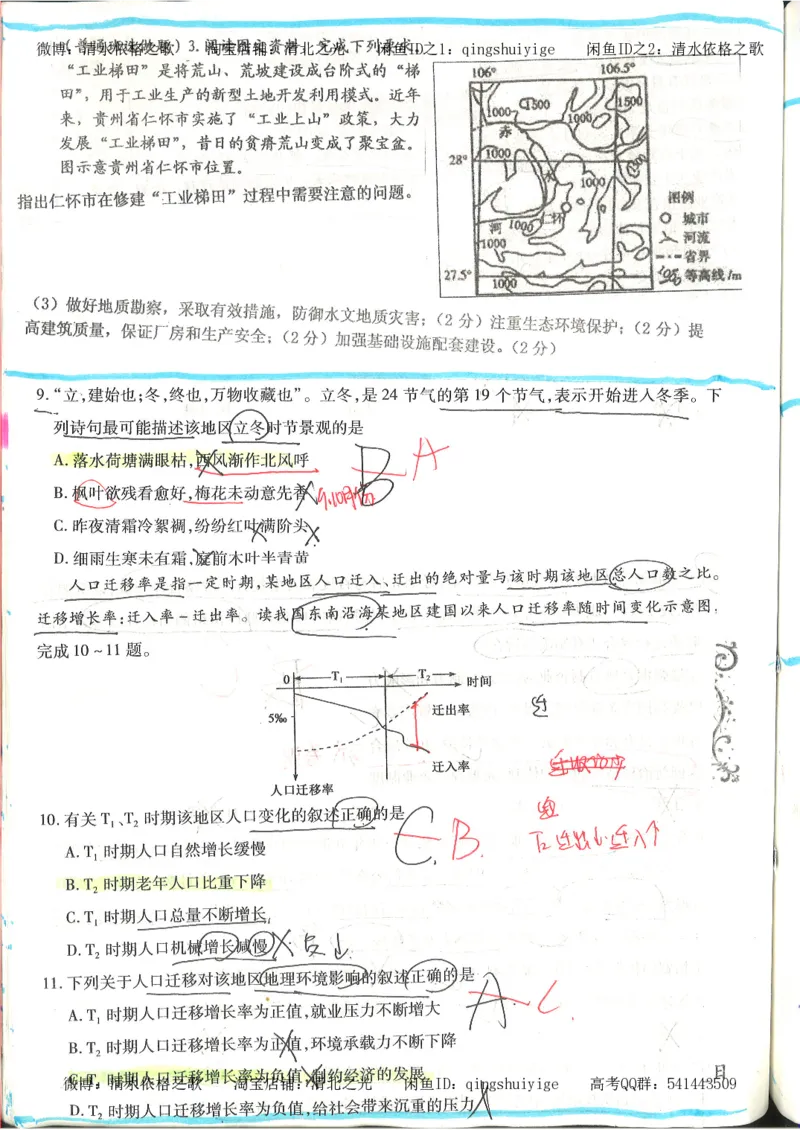 微博:清水依格之歌 淘宝店铺:清北之光 闲鱼ID之1:qingshuiyige 闲鱼ID之2:清水依格之歌
(普通班选做题)3.阅读图文资料,完成下列要求。
“工业梯田”是将荒山、荒坡建设成台阶式的“梯
田”,用于工业生产的新型土地开发利用模式。近年
来,贵州省仁怀市实施了“工业上山”政策,大力
发展“工业梯田”,昔日的贫瘠荒山变成了聚宝盆。
图示意贵州省仁怀市位置。
指出仁怀市在修建“工业梯田”过程中需要注意的问题。
106° 106.5°
1500 1500
1000 1000
赤
28° 1000
水 1000
仁怀
河 1000
1000
27.5° 1000
图例
城市
河流
省界
等高线/m
(3)做好地质勘察,采取有效措施,防御水文地质灾害;(2分)注重生态环境保护;(2分)提
高建筑质量,保证厂房和生产安全;(2分)加强基础设施配套建设。(2分)
9.“立,建始也;冬,终也,万物收藏也”。立冬,是24节气的第19个节气,表示开始进入冬季。下
列诗句最可能描述该地区立冬时节景观的是
A.落水荷塘满眼枯,西风渐作北风呼
B A
B.枫叶欲残看愈好,梅花未动意先香
9.10月份
C.昨夜清霜冷絮裯,纷纷红叶满阶头
D.细雨生寒未有霜,庭前木叶半青黄
人口迁移率是指一定时期,某地区人口迁入、迁出的绝对量与该时期该地区总人口数之比。
迁移增长率:迁入率-迁出率。读我国东南沿海某地区建国以来人口迁移率随时间变化示意图,
完成10~11题。
0 T₁ T₂ 时间
5‰
迁出率
迁入率
人口迁移率
10.有关T₁、T₂时期该地区人口变化的叙述正确的是
C. B.
T₂迁出↓迁入↑
A.T₁时期人口自然增长缓慢
B.T₂时期老年人口比重下降
C.T₁时期人口总量不断增长
D.T₂时期人口机械增长减慢
反↓
11.下列关于人口迁移对该地区地理环境影响的叙述正确的是
A C.
A.T₁时期人口迁移增长率为正值,就业压力不断增大
B.T₂时期人口迁移增长率为正值,环境承载力不断下降
C.T₁时期人口迁移增长率为负值,制约经济的发展
微博:清水依格之歌 淘宝店铺:清北之光 闲鱼ID:qingshuiyige 高考QQ群:541443509
D.T₂时期人口迁移增长率为负值,给社会带来沉重的压力